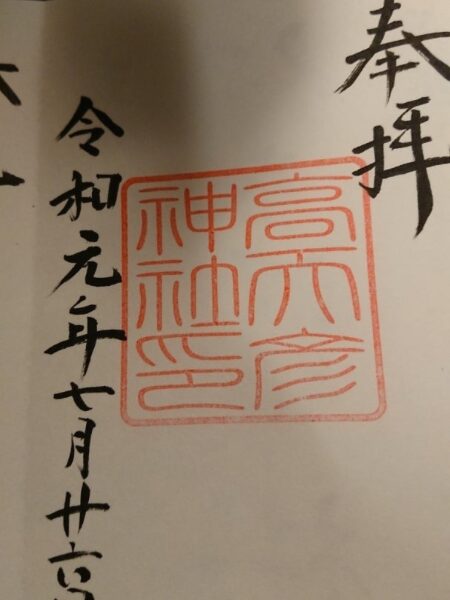 奉拝
高天彦
神社印
令和元年七月廿六日